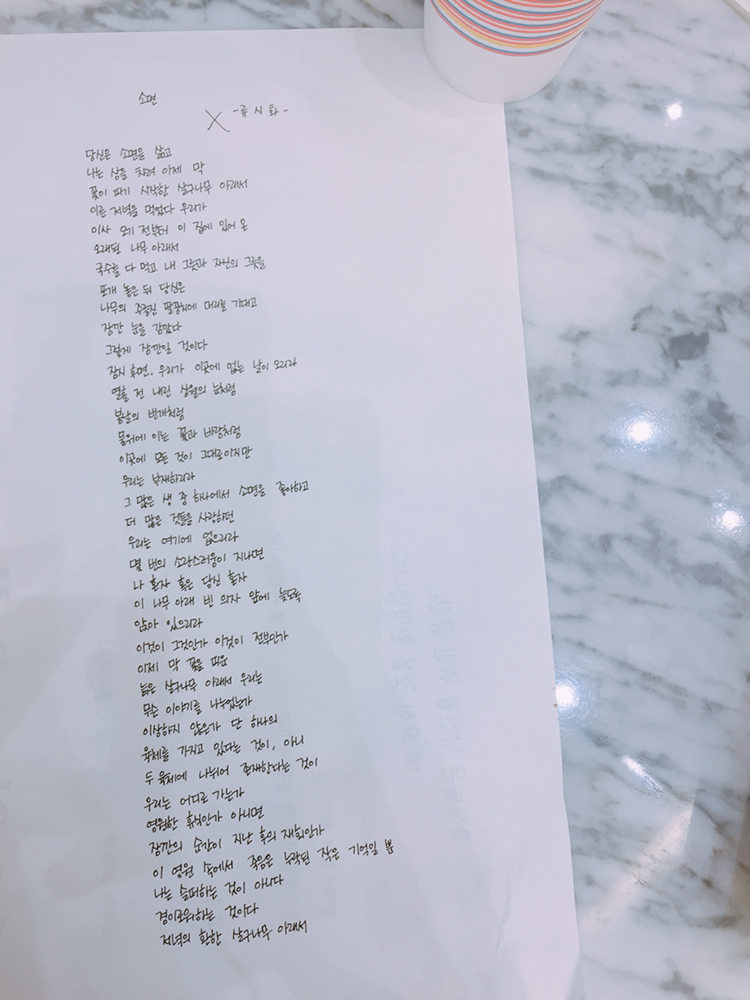 소면
- 류시화 -
당신은 소면을 삶고
나는 상을 차려 이제 막
꽃이 피기 시작한 살구나무 아래서
이른 저녁을 먹었다 우리가
이사 오기 전부터 이 집에 있어 온
오래된 나무 아래서
국수를 다 먹고 내 그릇과 자신의 그릇을
포개 놓은 뒤 당신은
나무의 주름진 팔꿈치에 머리를 기대고
잠깐 눈을 감았다
그렇게 잠깐일 것이다
잠시 후면, 우리가 이곳에 없는 날이 오리라
열흘 전 내린 삼월의 눈처럼
봄날의 번개처럼
물위에 이는 꽃과 바람처럼
이곳에 모든 것이 그대로이지만
우리는 부재하리라
그 많은 생 중 하나에서 소면을 좋아하고
더 많은 것들을 사랑하던
우리는 여기에 없으리라
몇 번의 소란스러움이 지나면
나 혼자 혹은 당신 혼자
이 나무 아래 빈 의자 앞에 늦도록
앉아 있으리라
이것이 그것인가 이것이 전부인가
이제 막 꽃을 피운
늙은 살구나무 아래서 우리는
무슨 이야기를 나누었는가
이상하지 않은가 단 하나의
육체를 가지고 있다는 것이, 아니
두 육체에 나뉘어 존재한다는 것이
우리는 어디로 가는가
영원한 휴식인가 아니면
잠깐의 순간이 지난 후의 재회인가
이 영원 속에서 죽음은 누락된 작은 기억일 뿐
나는 슬퍼하는 것이 아니다
경이로워하는 것이다
저녁의 환한 살구나무 아래서